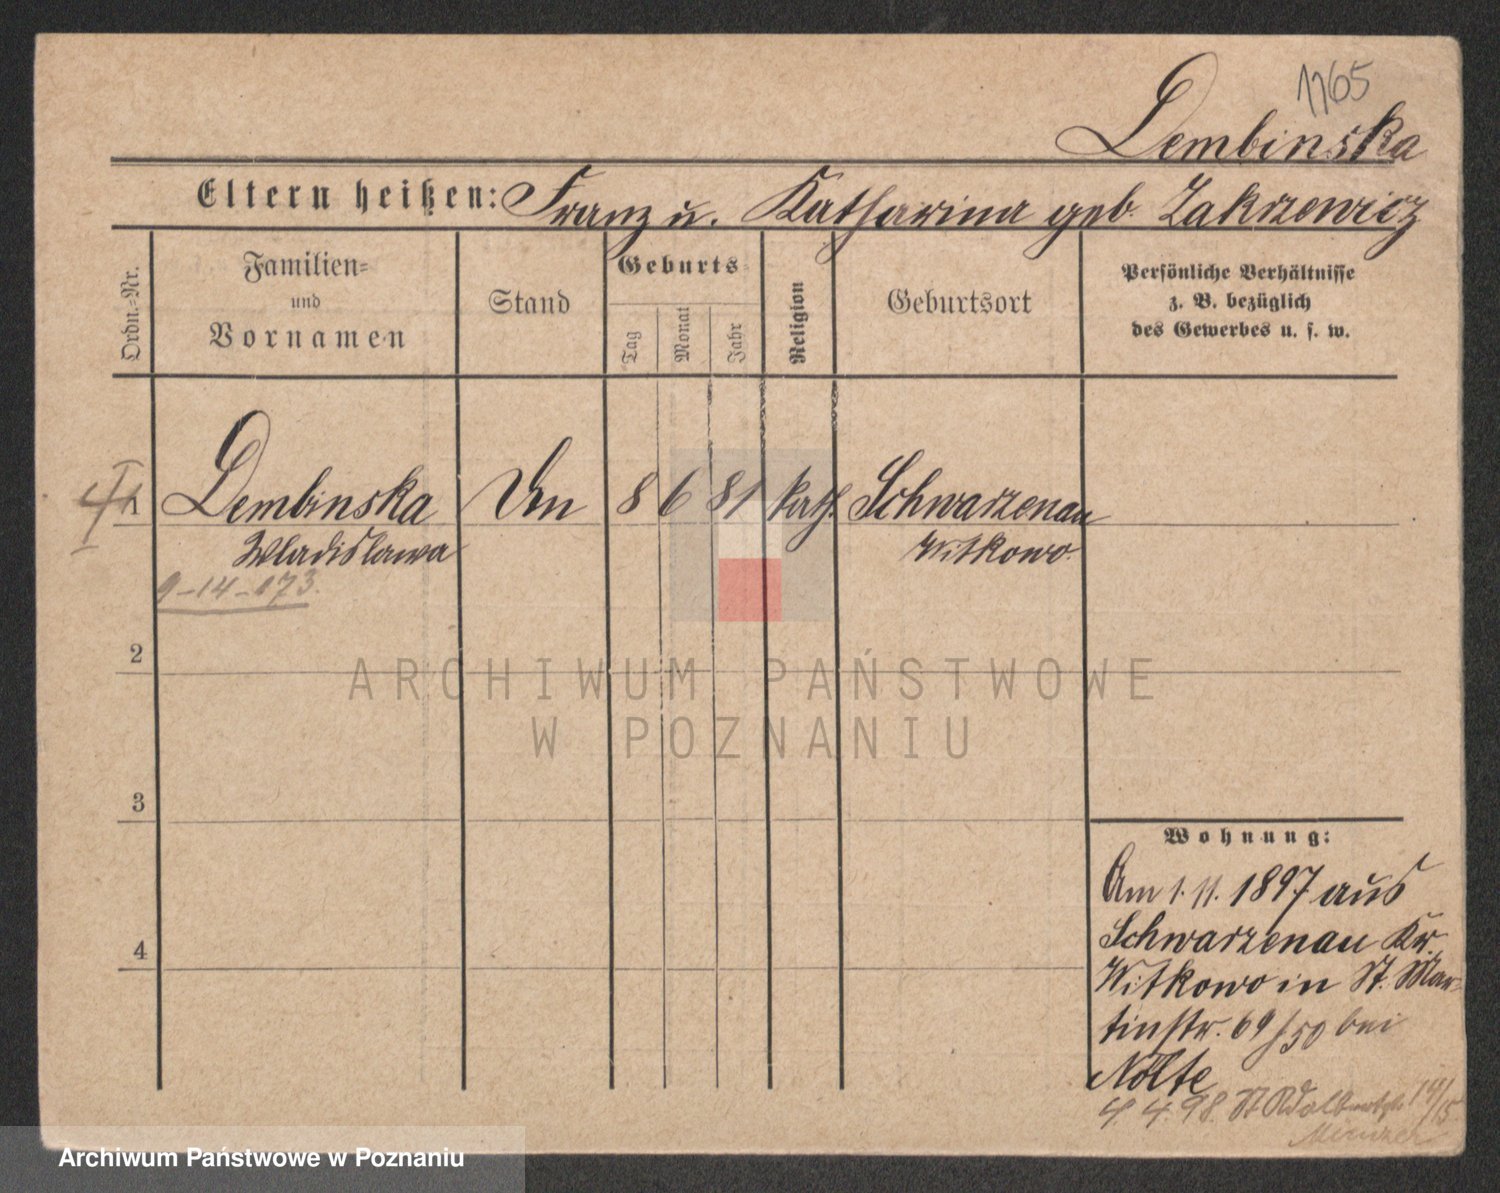 1765
Dembinska
Eltern heißen: Franz u. Katharina geb. Zakrzewicz
Ordn.=Nr.
Familien=
und
Vornamen
Stand
Geburts
Tag
Monat
Jahr
Religion
Geburtsort
Persönliche Verhältnisse
z. B. bezüglich
des Gewerbes u. s. w.
1 Dembinska 8 6 81 kath. Schwarzenau
Wladislawa Witkowo.
9-14-173.
2
ARCHIWUM PAŃSTWOWE
W POZNANIU
3
Wohnung:
Am 1. 11. 1897 aus
Schwarzenau Kr.
4
Witkowo in St. Mar-
tinstr. 69 bei
Nolte
4. 4. 98. St 14/15
Archiwum Państwowe w Poznaniu